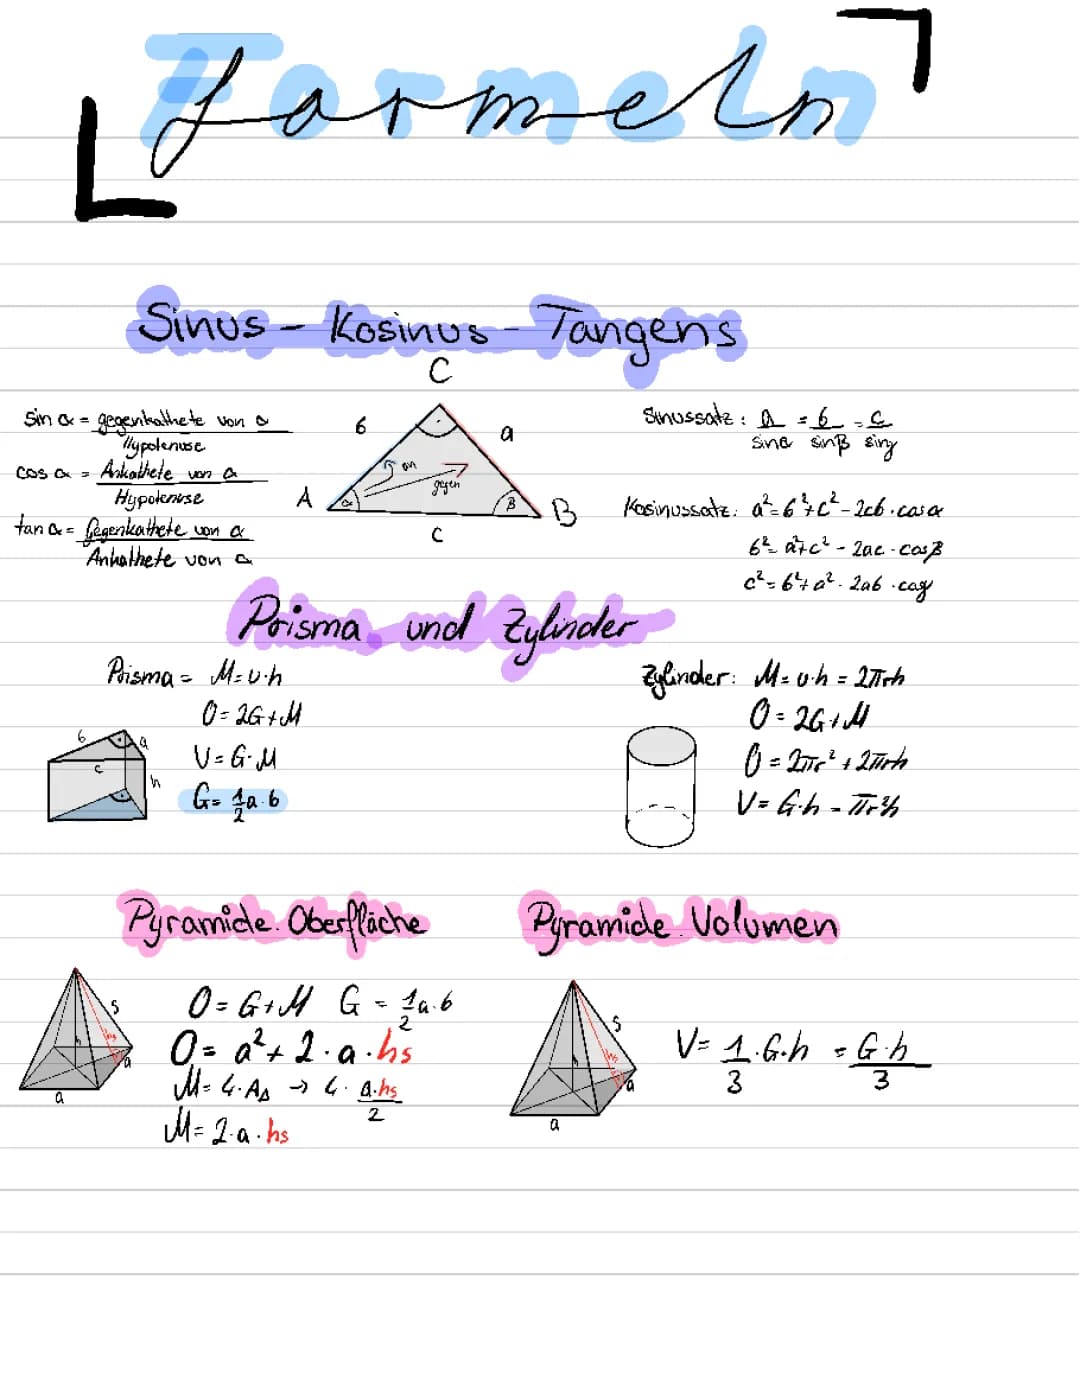 Formeln
Sinus - Kosinus - Tangens
sin α = gegenkathete von α / Hypotenuse
cos α = Ankathete von α / Hypotenuse
tan α = Gegenkathete von α / Ankathete von α
C
b
a
an
gegen
A
α
β
B
c
Sinussatz: a/sinα = b/sinβ = c/sinγ
Kosinussatz: a² = b² + c² - 2cb · cosα
b² = a² + c² - 2ac · cosβ
c² = b² + a² - 2ab · cosγ
Prisma und Zylinder
Prisma = M = u·h
O = 2G + M
V = G·M
G = 1/2 a·b
b
a
c
h
Zylinder: M = u·h = 2πrh
O = 2G + M
O = 2πr² + 2πrh
V = G·h = πr²h
Pyramide Oberfläche
s
h
hs
a
a
O = G + M G = 1/2 a·b
O = a² + 2 · a · hs
M = 4·A△ → 4 · a·hs/2
M = 2·a·hs
Pyramide Volumen
s
h
hs
a
a
V = 1/3 · G·h = G·h/3